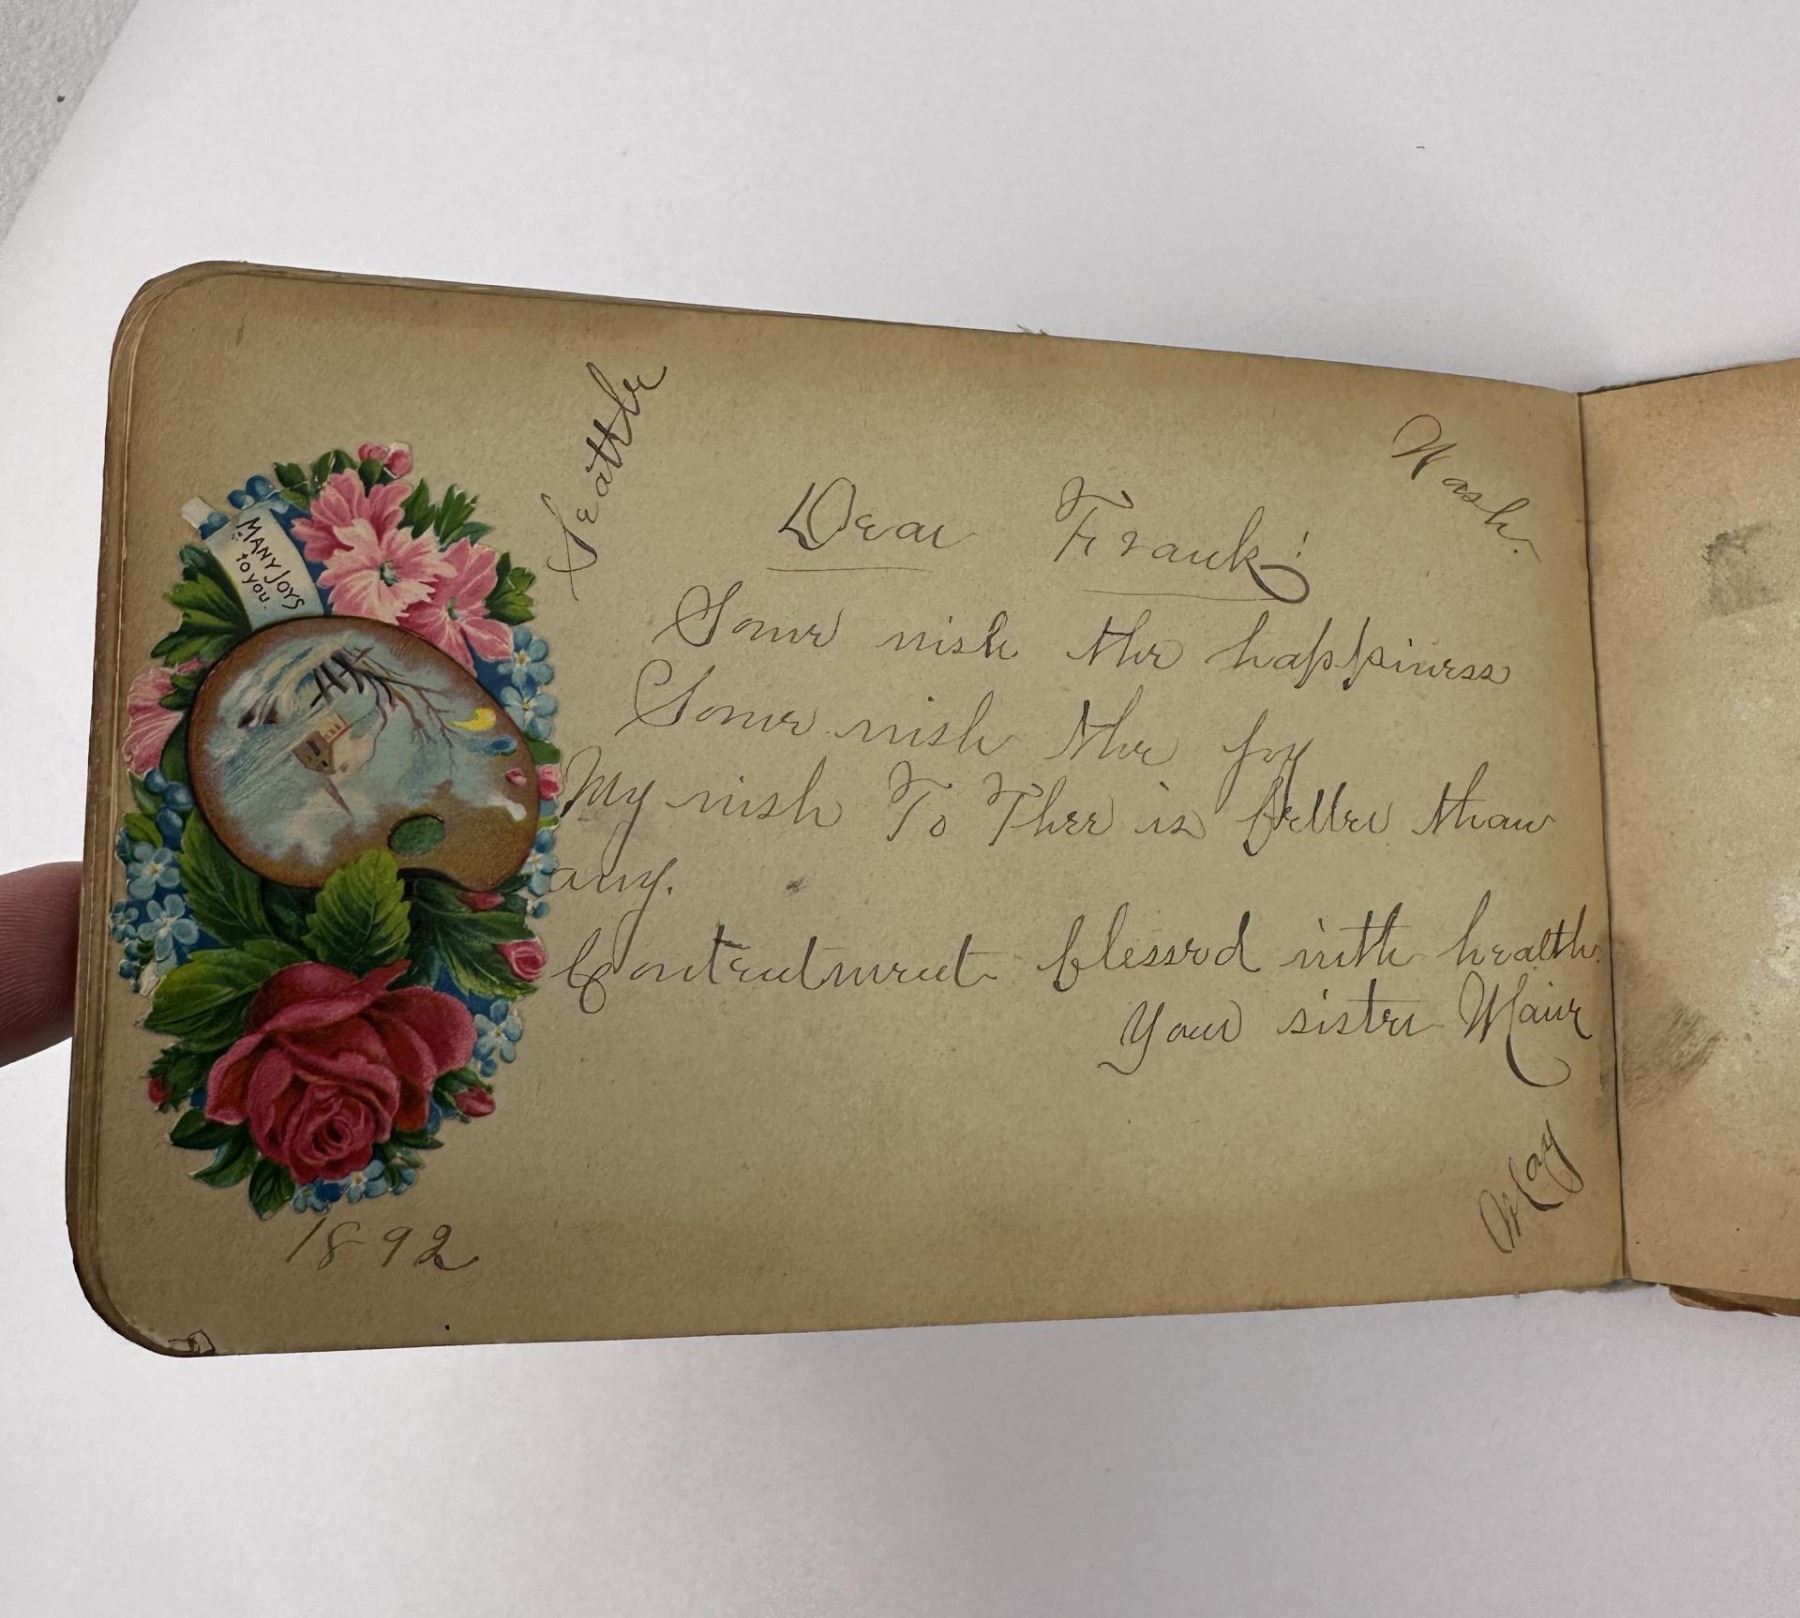 Seattle
Wash.
MANY JOYS
to you.
Dear Frank!
Some wish the happiness
Some wish the joy
My wish To Thee is better than
any.
Contentment blessed with health.
Your sister
May
1892